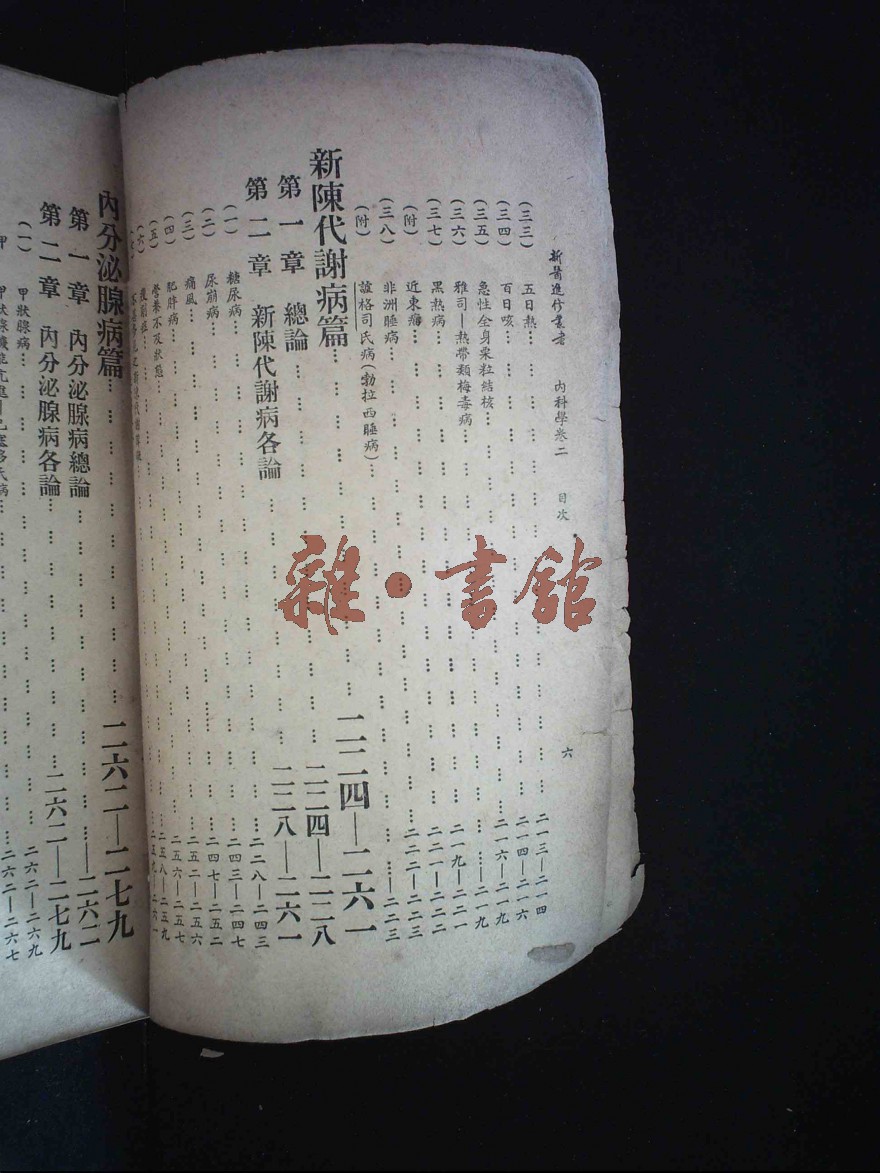 新醫進修叢書 內科學卷二 目次 六
(三三) 五日熱 二一三—二一四
(三四) 百日咳 二一四—二一六
(三五) 急性全身粟粒結核 二一六—二一九
(三六) 雅司—熱帶類梅毒病 二一九
(三七) 黑熱病 二一九—二二一
(附) 近東癤 二二一—二二二
(三八) 非洲睡病 二二二—二二三
(附) 謢格司氏病(勃拉西睡病) 二二三
新陳代謝病篇 二二四—二六一
第一章 總論 二二四—二二八
第二章 新陳代謝病各論 二二八—二六一
(一) 糖尿病 二二八—二四三
(二) 尿崩病 二四三—二四七
(三) 痛風 二四七—二五二
(四) 肥胖病 二五二—二五六
(五) 營養不及狀態 二五六—二五七
(六) 二五八—二五九
二五九—二六一
內分泌腺病篇 二六二—二七九
第一章 內分泌腺病總論 二六二
第二章 內分泌腺病各論 二六二—二七九
(一) 甲狀腺病 二六二—二六九
甲 二六二—二六七
雜·書館